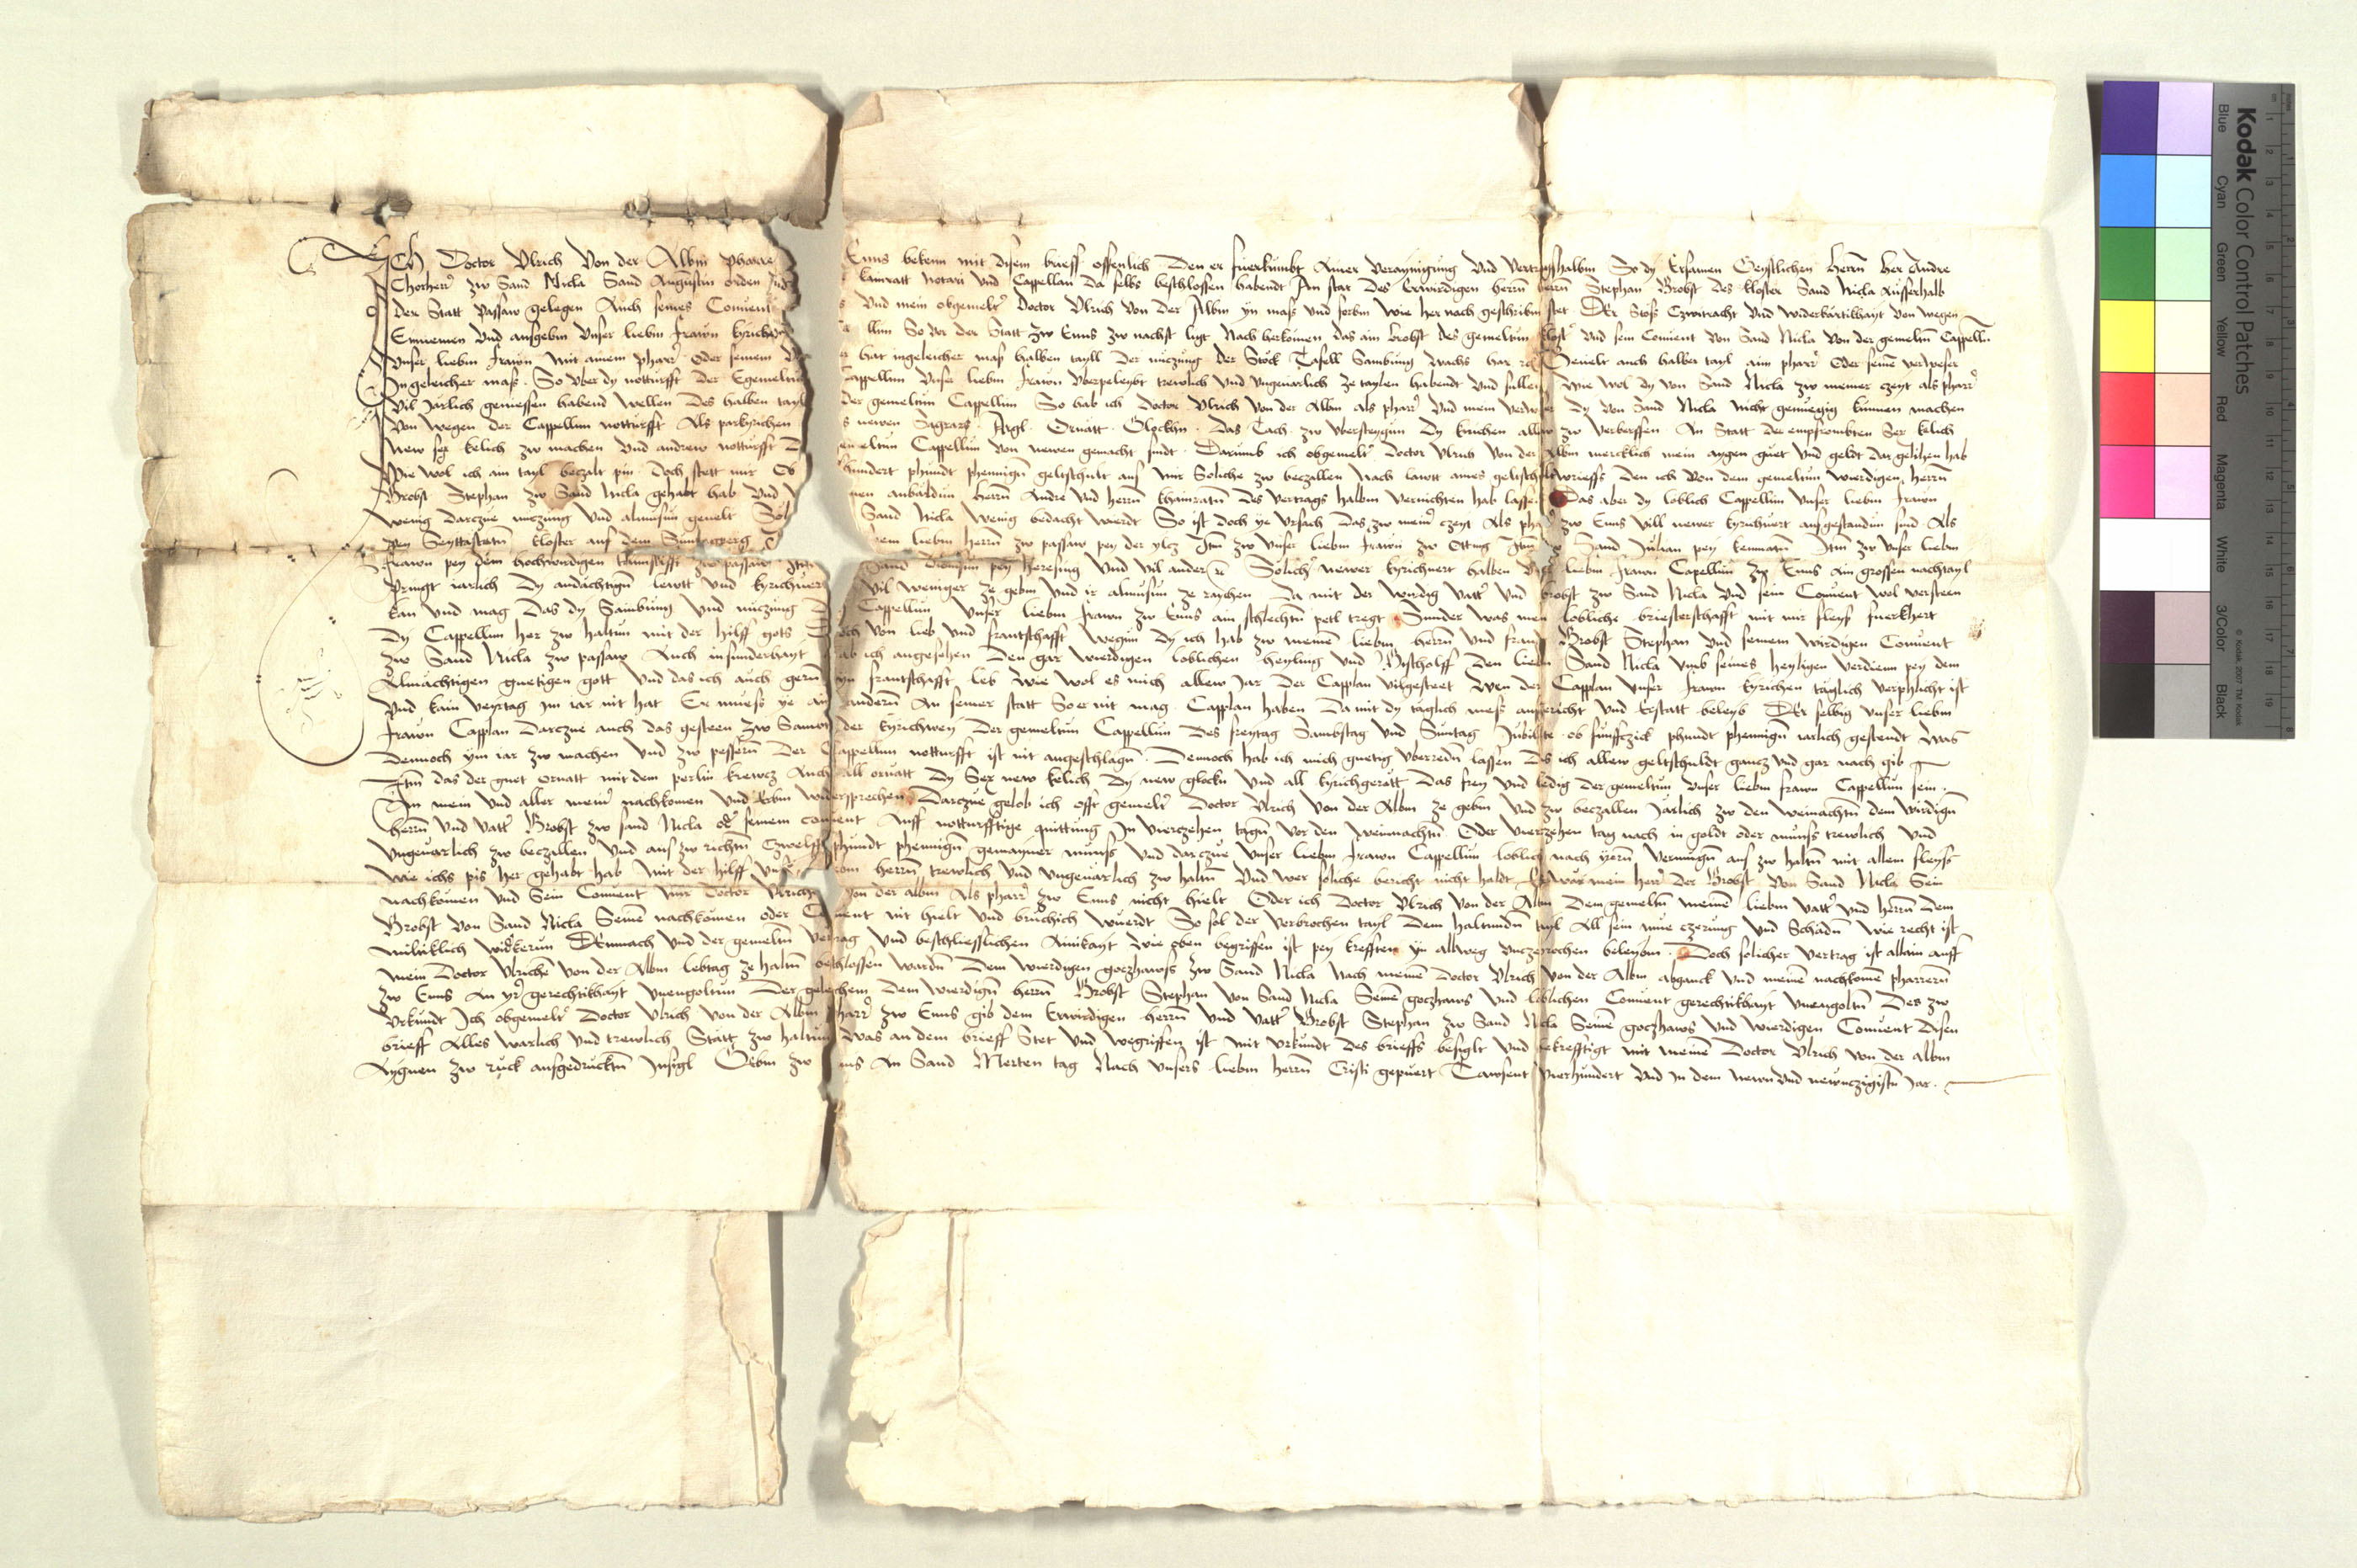 Ich Doctor Vlrich Von der Albm pharrer Enns bekenn mit disem brieff offenlich Den er fuerkumbt Ainer Veraynigung Vnd Vertragshalbm So dy Ersamen Geystlichen herrn her Andre
Chorherr zw Sand Nicla Sand Augustin orden kunratt Notari Vnd Cappellan Da selbs beschlossen habendt An stat Des Erwirdigen herrn herrn Stephan Brobst des kloster Sand Nicla Ausserhalb
der Statt Passaw gelegen Auch seines Conuent Vnd mein obgemelter Doctor Vlrich Von der Albm yn mass Vnd forbm wie her nach geschribm stet Der Stöss Czwitracht Vnd widerbärtikhayt Von wegen
Einnemen Vnd aufgebm Vnser liebm frawn kyrichen So Vor der Statt zw Enns zw nachst ligt Nach herkomen das ain brobst des gemeltun Vnd sein Conuent Von Sand Nicla Von der gemeltn Cappelln
Vnser liebm frawn Mit ainem pharrer Oder seinem hat ingeleicher mass halben tayll Der niczung der Stöck Tafell Sambung wachs har Geuelt auch halber tayl aim pharrer Oder seinem Verweser
In geleicher mass So Vber dy notturfft Der Egemeltun Cappellun Vnser liebm frawn Vberpeleybt trewlich Vnd Vngeuarlich ze taylen habendt Vnd sullen wie wol dy Von Sand Nicla zw meiner czeyt als pharrer
Vil Järlich geniessen habend wellen Des halben tayl der gemeltun Cappellun So hab ich Doctor Vlrich Von der Albm als pharrer Vnd mein Verweser Dy Von Sand Nicla nicht genuegig kunnen machen
Von Wegen der Cappellun notturfft Als parkyrichen newen Sagrars Argl Ornatt Glockhn Das Tach zw Vbersteygun Dy kirichen allew zw Verberffen An Statt der empfrombten Sex kelich
New sex kelich zw machen Vnd andrew notturfft gemeltun Cappellun Von newen gemacht sindt Darumb ich obgemelter Doctor Vlrich Von der Albm mercklich mein aygen guet Vnd geldt dar gelihen hab
Wie wol ich ain tayl beczalt pin Doch stett mir hundert phundt phennigun geltschult auf mir Soliche zw beczallen Nach lawtt aines geltschultbrieffs Den ich Von dem gemeltun wierdigen herrn
Brobst Stephan zw Sand Nicla gehabt hab Vnd anbäldun herrn Andre Vnd herrn khunratn Des Vertrags halbm Vernichten hab lassen Das aber dy loblich Cappellun Vnser liebm frawn
wenig darczue niczung Vnd almusun geuelt Sand Nicla wenig bedacht wierdt So ist doch ye Vrsach Das zw meiner czeyt Als pharrer zw Enns Vill newer kyrichuert aufgestandun sind Als
pey Seyttastettn kloster auf dem Suntagperg liebm herrn zw passaw pey der ylcz Itm zw Vnser liebm frawn zw Otting Itm zw Sand Julian pey kenmattn Itm zw Vnser liebm
frawn pey dem hochwirdigen thumstifft zw passaw Itm Sand Dionisun pey Heresing Vnd Vil ander Solicher newer kyrichuert halben Vnser liebm frawn Capellun zw Enns ain grossen nachtayl
Bringt iarlich Dy andächtign lewtt Vnd kyrichuert Vil weniger ze gebm Vnd ir almusun ze raychen Da mit der wirdig Vatter Vnd brobst zw Sand Nicla Vnd sein Conuent wol Versteen
kan Vnd mag Das dy Sambung Vnd niczung Cappellun Vnser liebm frawn zw Enns ain schlechtn petl tregt Sunder was mein lobliche briesterschafft mit mir fleys fuerkhert
Dy Cappellun her zw haltun mit der hilff gots Von lieb Vnd frantschafft wegun Dy ich hab zw meinem liebm herrn Vnd frand Brobst Stephan Vnd seinem wirdigen Conuent
zw Sand Nicla zw passaw Auch insunderhayt hab ich angesehen Den gar wierdigen loblichen heyling Vnd Byscholff Den liebm Sand Nicla Vmb seines heyligen Verdienn pey dem
Almächtigen guetigen gott Vnd das ich auch gern yn frantschafft leb wie wol es mich allew Jar Der Capplan Vilgesteet Wen der Capplan Vnser frawn kyrichen täglich Verphlicht ist
Vnd kain Veyrtag im iar nit hat Er muess ye ain andern An seiner statt So er nit mag Capplan haben Da mit dy täglich mess aufgericht Vnd Erstatt beleyb Der selbig Vnser liebm
frawn Capplan Darczue auch das gesteen zw Sambt der kyrichwey Der gemeltun Cappellun Des freytag Sambstag Vnd Suntag Jubilate ob funffczick phundt phennigun iarlich gestendt Was
Dennoch ym iar zw machen Vnd zw pessern Der Cappellun notturfft ist nit angeschlagn Dennoch hab ich mich guetig Vberredn lassen Des ich allew geltschuldt gancz Vnd gar nach gib
Itm das der guet ornatt mit dem perlin krewcz Auch all ornatt Dy Sex new kelich Dy new glockn Vnd all kyrichgerätt Das frey Vnd ledig der gemeltun Vnser liebm frawn Cappellun sein
An mein Vnd aller meiner nachkomen Vnd Erbm widersprechen Darczue gelob ich offt gemelter Doctor Vlrich Von der Albm ze gebm Vnd zw beczallen Järlich zw den weinachtn dem wirdign
herrn Vnd Vatter Brobst zw sand Nicla oder seinem conuent Auff notturfftige quittung In Vierczehen tagn Vor den Weinnachtn Oder Vierczehen tag nach in goldt oder munss trewlich Vnd
Vngeuarlich zw beczallen Vnd aus zw richtn Czwelff phundt phennign gemayner munss Vnd darczue Vnser liebm frawn Cappellun loblich nach yrern Vermugn auf zw haltn mit allem fleyss
Wie ichs pis her gehabt hab Mit der hilff herrn trewlich Vnd Vngeuärlich zw haltn Vnd wer soliche bericht nicht haldt Es wär mein herr Der Brobst Von Sand Nicla Sein
nachkomen Vnd Sein Conuent Mir Doctor Vlrich Von der albm Als pharrer zw Enns nicht hielt Oder ich Doctor Vlrich Von der Albm Dem gemeltn meinem liebm Vatter Vnd herrn Dem
Brobst Von Sand Nicla Seinem nachkomen oder Conuent nit hielt Vnd bruchich wuerdt So sol der Verbrochen tayl Dem haltundn tayl All sein mue czerung Vnd Schadn wie recht ist
widerkerun Demnach Vnd der gemeltn Vertrag Vnd beschliesslichen Ainikayt wie oben begriffen ist pey krefften yn allweg Vnczerprochen beleybm Doch solicher Vertrag ist allain auff
mein Doctor Vlrichem Von der Albm lebtag ze haltn beschlossen wardn Dem wierdigen goczhawss zw Sand Nicla Nach meinem Doctor Vlrich Von der Albm abganck Vnd meinem nachkomen pharrern
zw Enns An yrer gerechtikhayt Vnengoltun Der geleichem Dem wierdign herrn Brobst Stephan Von Sand Nicla Seinem goczhaws Vnd loblichen Conuent gerechtikhayt Vnengoltn Des zw
Vrkundt Ich obgemelter Doctor Vlrich Von der Albm pharrer zw Enns gib dem Erwirdigen herrn Vnd Vatter Brobst Stephan zw Sand Nicla Seinem goczhaws Vnd wierdigen Conuent Disen
brieff Alles warlich Vnd trewlich Statt zw haltun Was an dem brieff Stet Vnd wegriffen ist Mit Vrkundt Des brieffs besiglt Vnd bekrefftigt mit meinem Doctor Vlrich Von der albm
Aygnen zw ruck aufgedrucktn Insigl Gebm zw Enns An Sand Merten tag Nach Vnsers liebm herrn Cristi gepuert Tawsent Vierhundert Vnd In dem Newn Vnd newnczigistn Jar
Kodak Color Control Patches
Blue Cyan Green Yellow Red Magenta White 3/Color Black
© Kodak, 2007 TM: Kodak